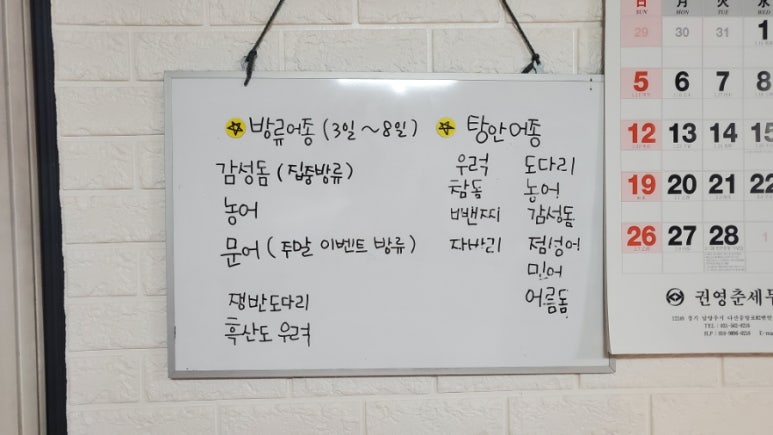 방류어종 (3일~8일)
감성돔 (집중방류)
농어
문어 (주말 이벤트 방류)
쟁반도다리
흑산도 우럭
탕안어종
우럭 도다리
참돔 농어
바밴찌 감성돔
자바리 점성어
민어
어름돔
日 月 火 水
SUN MON TUE
29 30 31 1
5 6 7 8
12 13 14 15
19 20 21 22
26 27 28 1
권영춘세무